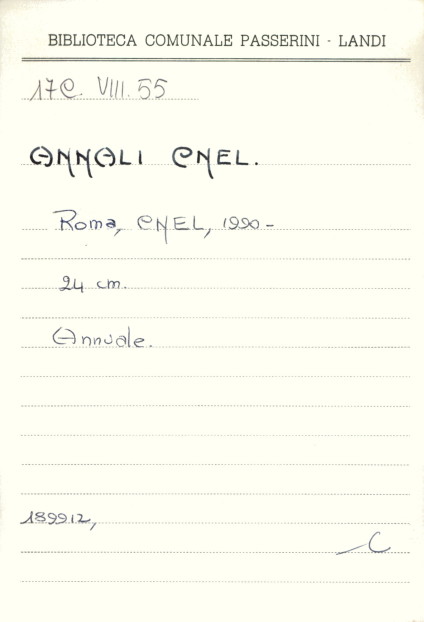 BIBLIOTECA COMUNALE PASSERINI - LANDI
17C. VIII. 55
ANNALI CNEL.
Roma, CNEL, 1990-
24 cm.
Annuale.
189912,
C